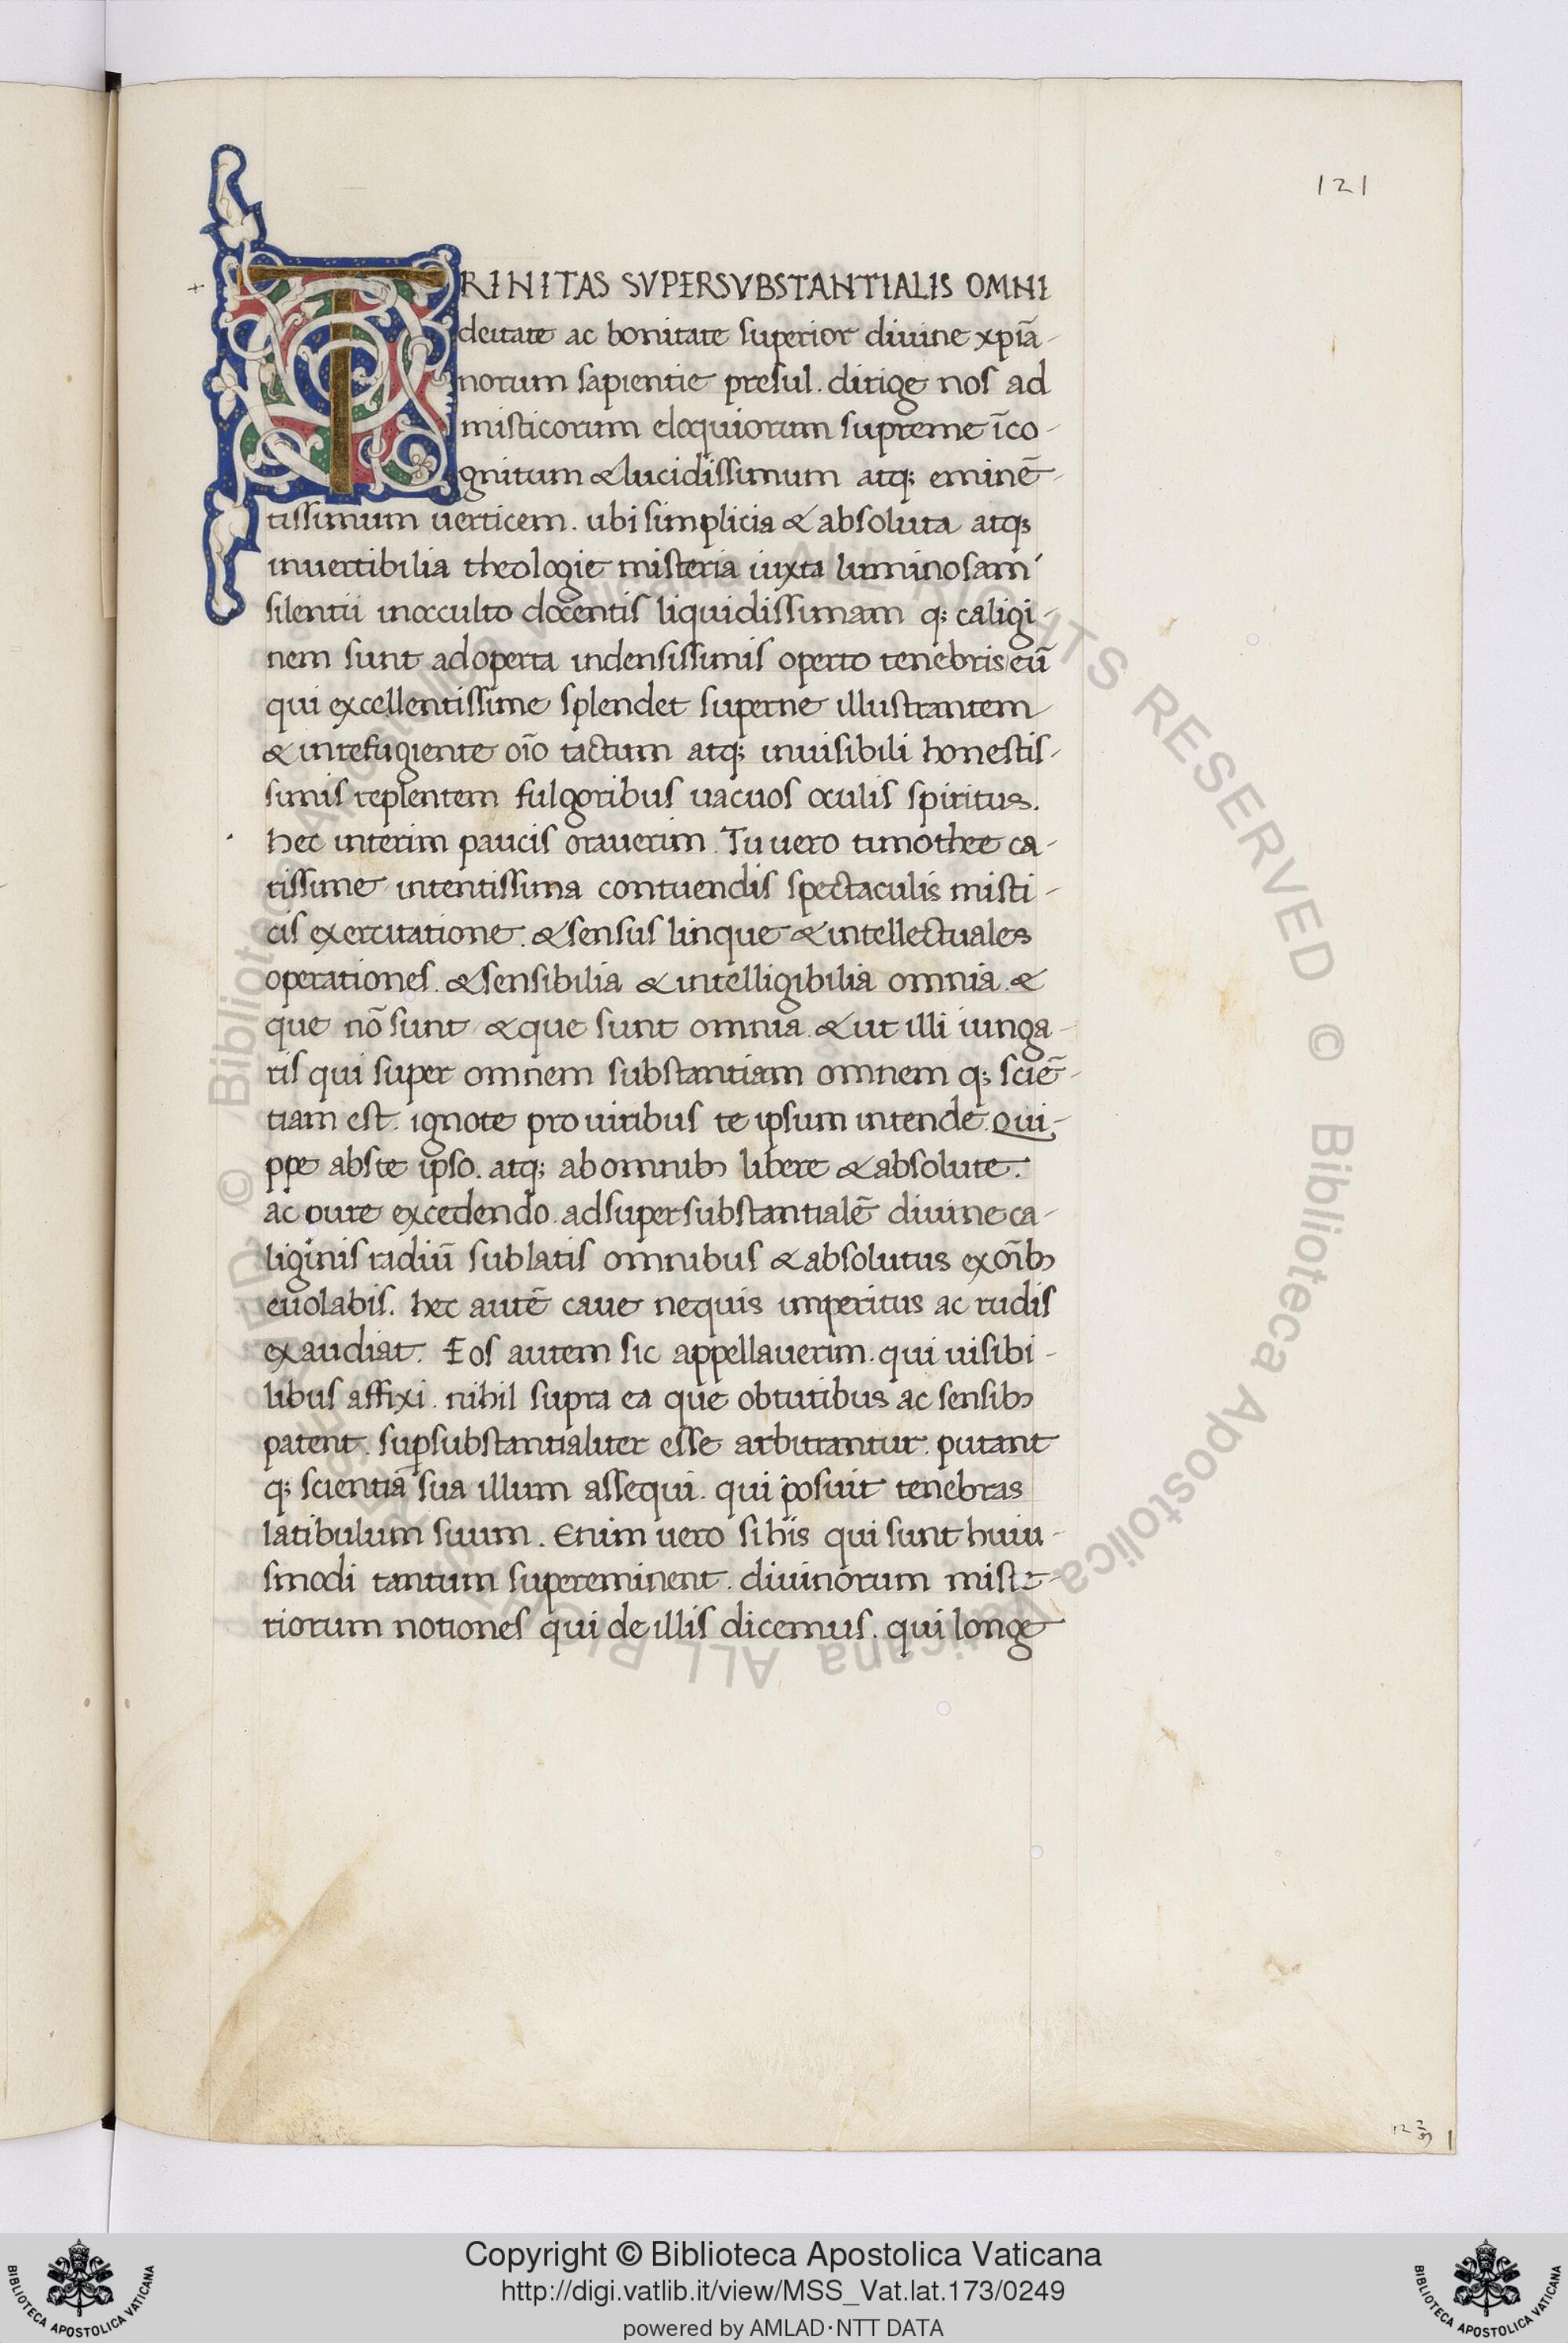 121
TRINITAS SVPERSVBSTANTIALIS OMNI
deitate ac bonitate superior diuine xpiā-
norum sapientie presul. dirige nos ad
misticorum eloquiorum supreme īco-
gnitum & lucidissimum atq; eminē-
tissimum uerticem. ubi simplicia & absoluta atq;
inuertibilia theologie misteria iuxta luminosam
silentii inocculto docentis liquidissimam q; caligi-
nem sunt adoperta indensissimis operto tenebris eū
qui excellentissime splendet superne illustrantem
& intefugiente oīo tactum atq; inuisibili honestis-
simis replentem fulgoribus uacuos oculis spiritus.
hec interim paucis orauerim. Tu uero timothee ca-
rissime intentissima contuendis spectaculis misti-
cis exercitatione. & sensus linque & intellectuales
operationes. & sensibilia & intelligibilia omnia. &
que nō sunt & que sunt omnia. & ut illi iunga-
ris qui super omnem substantiam omnem q; sciē-
tiam est. ignote pro uiribus te ipsum intende. Qui-
ppe abste ipso. atq; ab omnibꝫ libere & absolute.
ac pure excedendo. adsupersubstantialē diuine ca-
liginis radiū sublatis omnibus & absolutus ex oībꝫ
euolabis. hec autē caue nequis imperitus ac rudis
exaudiat. Eos autem sic appellauerim. qui uisibi-
libus affixi. nihil supra ea que obtutibus ac sensibꝫ
patent. suꝑsubstantialiter esse arbitrantur. putant
q; scientiā sua illum assequi. qui posuit tenebras
latibulum suum. Enim uero si his qui sunt huiu-
smodi tantum supereminent. diuinorum miste-
riorum notiones qui de illis dicemus. qui longe
© Biblioteca Apostolica Vaticana ALL RIGHTS RESERVED © Biblioteca Apostolica Vaticana ALL RIGHTS RESERVED
Copyright © Biblioteca Apostolica Vaticana
http://digi.vatlib.it/view/MSS_Vat.lat.173/0249
powered by AMLAD·NTT DATA
BIBLIOTECA APOSTOLICA VATICANA
BIBLIOTECA APOSTOLICA VATICANA